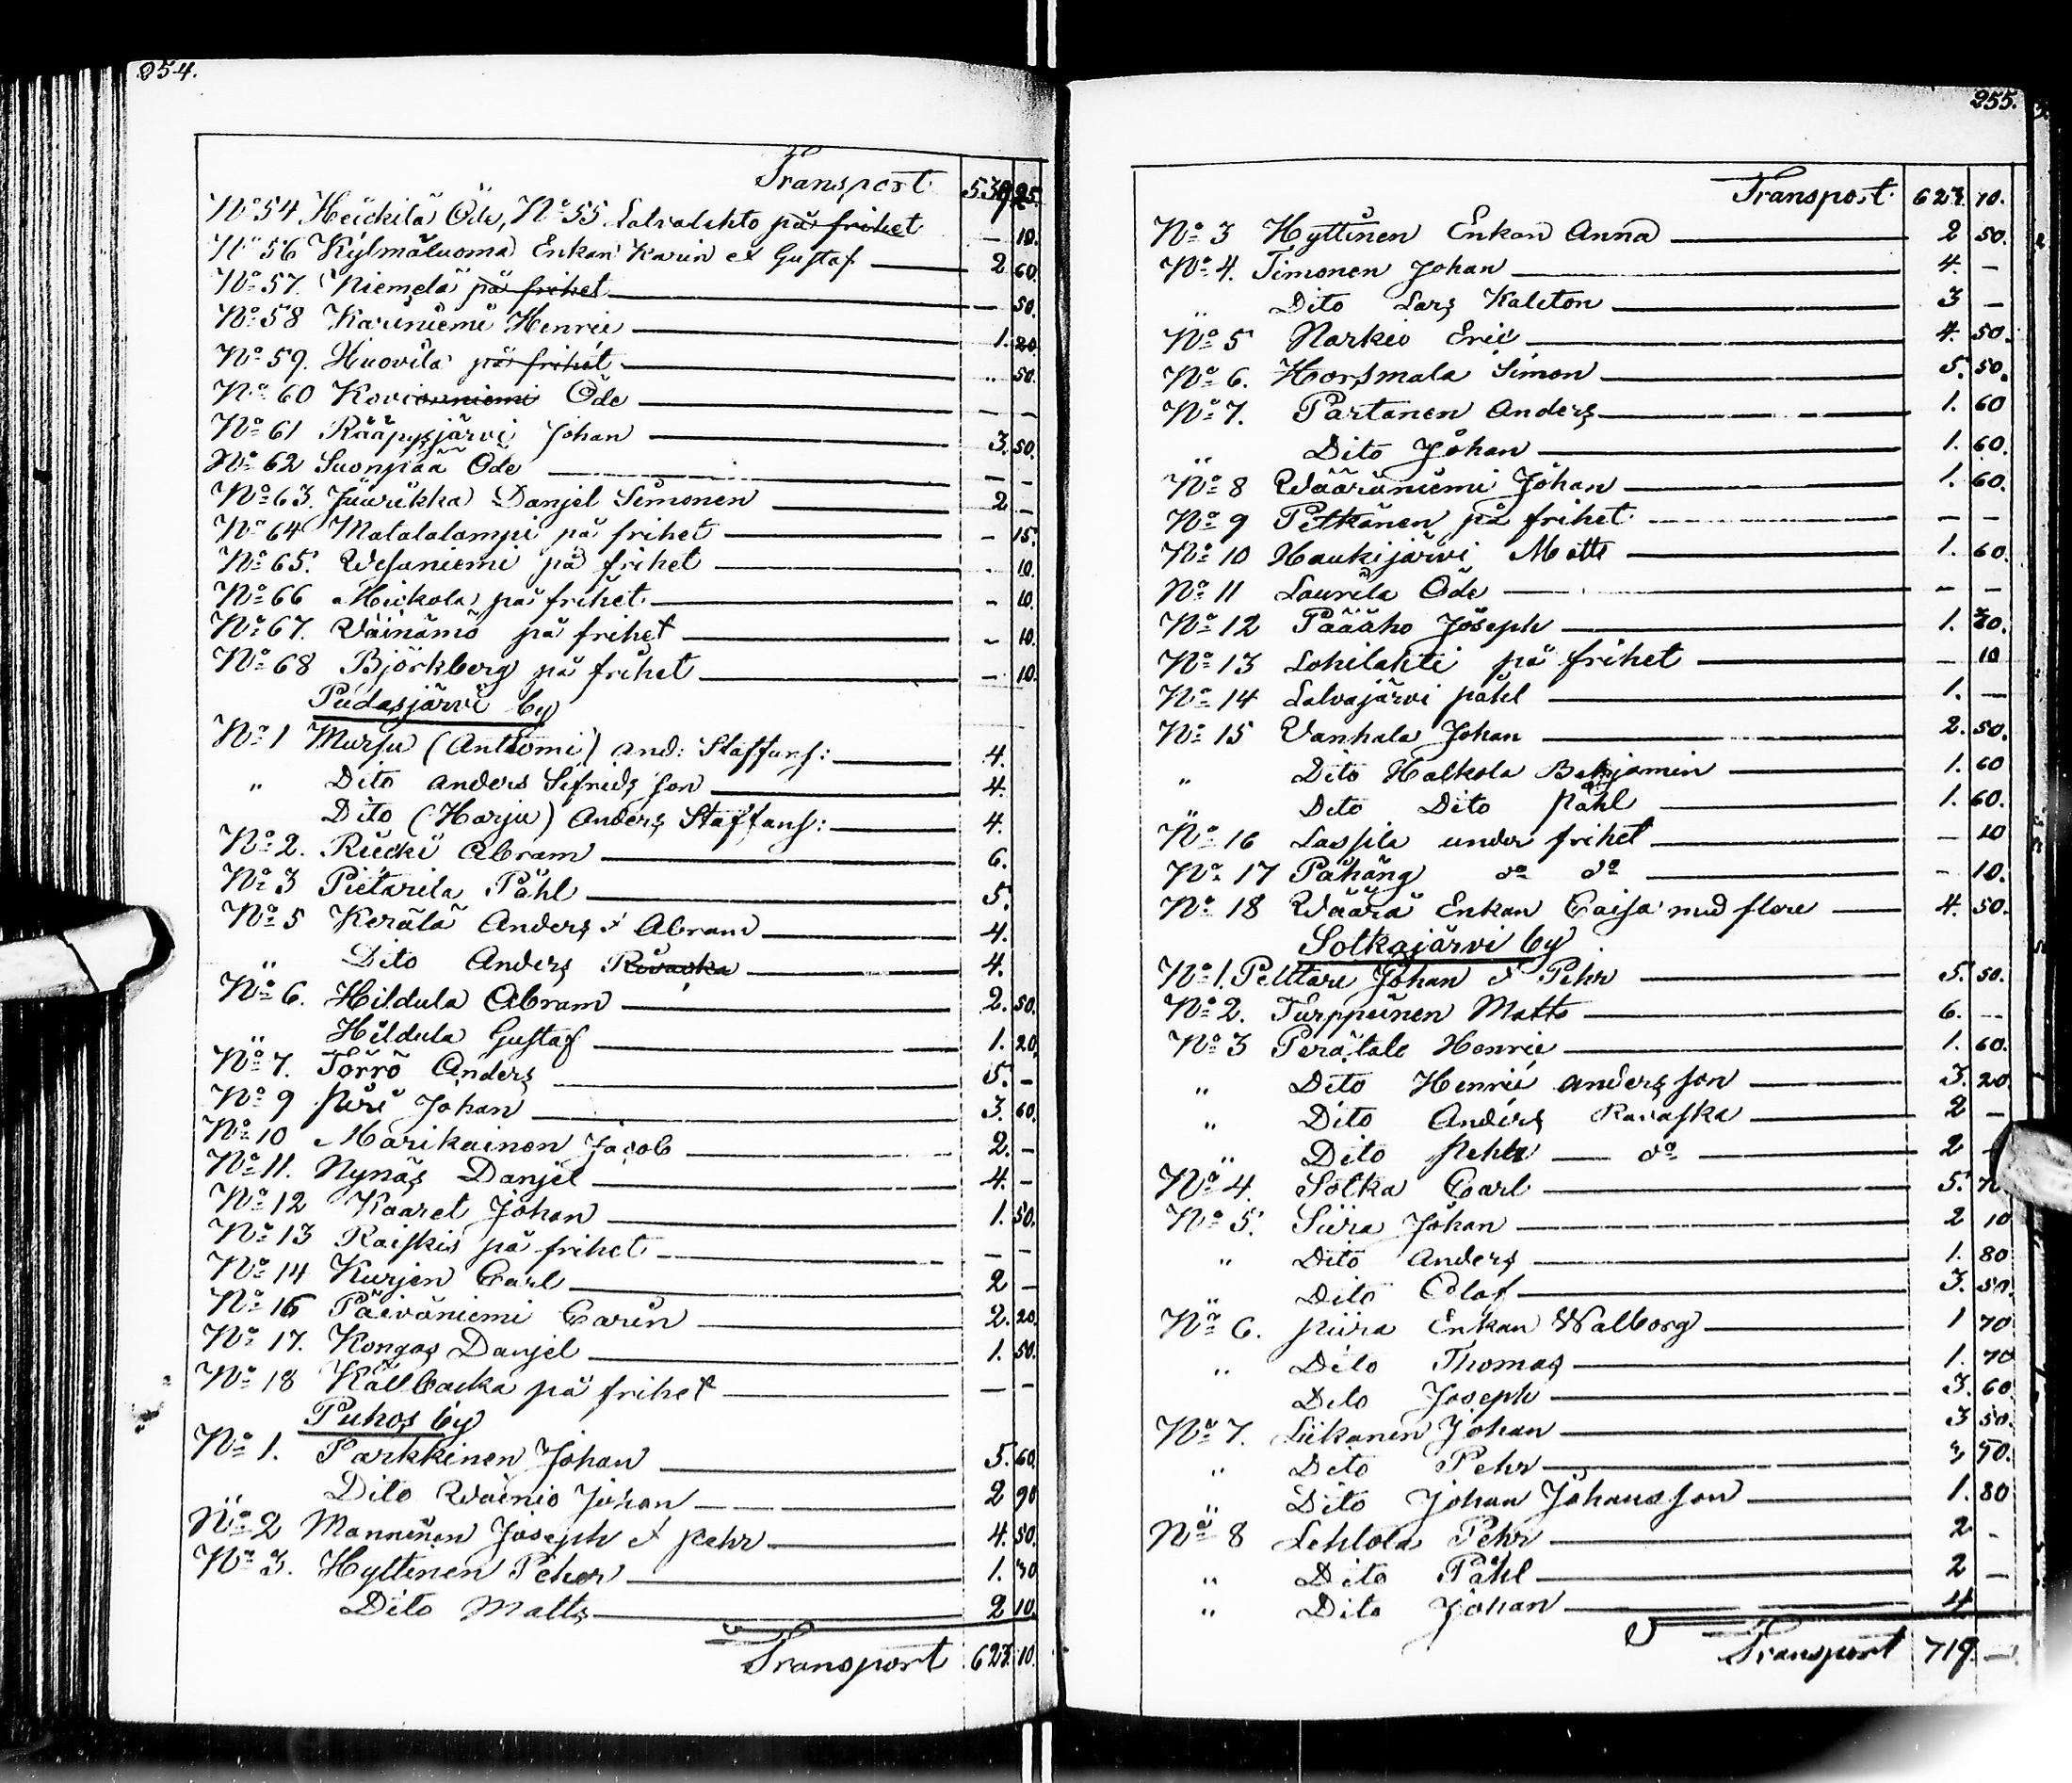 254.
Transport 539 25.
No 54 Heickilä Öde, No 55 Latvalehto på frihet — 10.
No 56 Kylmäluoma Enkan Karin et Gustaf 2 60.
No 57. Niemelä på frihet — 50.
No 58 Kariniemi Henric 1. 20
No 59. Huovila på frihet „ 50.
No 60 Öde — —
No 61 Rääpysjärvi Johan 3. 50.
No 62 Suonpää Öde — —
No 63. Juurikka Danjel Simonen 2 —
No 64 Matalalampi på frihet — 15.
No 65. Wesaniemi på frihet - 10.
No 66 Mickola på frihet - 10.
No 67. Wäinämö på frihet - 10.
No 68 Björkberg på frihet — 10.
Pudasjärvi by
No 1 Mursu (Anttomi) And: Staffans: 4.
„ Dito Anders Sifrids Son 4.
Dito (Harju) Anders Staffans: 4.
No 2. Riecki Abram 6.
No 3 Pietarila Påhl 5.
No 5 Kerälä Anders & Abram 4.
„ Dito Anders 4.
No 6. Hildula Abram 2. 50.
„ Hildula Gustaf 1. 20.
No 7. Törrö Anders 5. -
No 9 Piri Johan 3. 60.
No 10 Marikainen Jacob 2. -
No 11. Nynäs Danjel 4. -
No 12 Kaaret Johan 1. 50.
No 13 Raiskio på frihet — -
No 14 Kurjen Carl 2 -
No 16 Päiväniemi Carin 2. 20.
No 17. Kongas Danjel 1. 50.
No 18 Källbacka på frihet — -
Puhos by
No 1. Parkkinen Johan 5. 60.
Dito Wäinio Johan 2 90
No 2 Manninen Joseph et Pehr 4. 50.
No 3. Hyttinen Peher 1. 30
Dito Matts 2 10.
Transport 627. 10.
255.
Transport 627. 10.
No 3 Hyttinen Enkan Anna 2 50.
No 4. Timonen Johan 4. -
„ Dito Lars Kaleton 3 -
No 5 Narkio Eric 4. 50.
No 6. Horsmala Simon 5. 50.
No 7. Partanen Anders 1. 60
„ Dito Johan 1. 60.
No 8 Wääräniemi Johan 1. 60.
No 9 Petkänen på frihet — -
No 10 Haukijärvi Matts 1. 60.
No 11 Laurila Öde - -
No 12 Pääaho Joseph 1. 20.
No 13 Lohilahti på frihet — 10
No 14 Latvajärvi Påhl 1. —
No 15 Vanhala Johan 2. 50.
„ Dito Halkola Benjamin 1. 60
„ Dito Dito Påhl 1. 60.
No 16 Lassila under frihet — 10
No 17 Påhäng do do - 10.
No 18 Wäärä Enkan Caisa med flere 4. 50.
Sotkajärvi by
No 1. Pelttari Johan et Pehr 5. 50.
No 2. Turppeinen Matts 6. --
No 3 Perätalo Henric 1. 60.
„ Dito Henric Anders Son 3. 20
„ Dito Anders Ravaska 2 -
„ Dito Pehr — do 2 -
No 4. Sotka Carl 5.
No 5. Siira Johan 2 10
„ Dito Anders 1. 80
„ Dito Olof 3. 50.
No 6. Piira Enkan Walborg 1 70
„ Dito Thomas 1. 70
Dito Joseph 3. 60
No 7. Liikanen Johan 3 50.
„ Dito Pehr 3 50.
„ Dito Johan Johansson 1. 80
No 8 Lehtola Pehr 2 -
„ Dito Påhl 2 —
„ Dito Johan 4
Transport 719. —